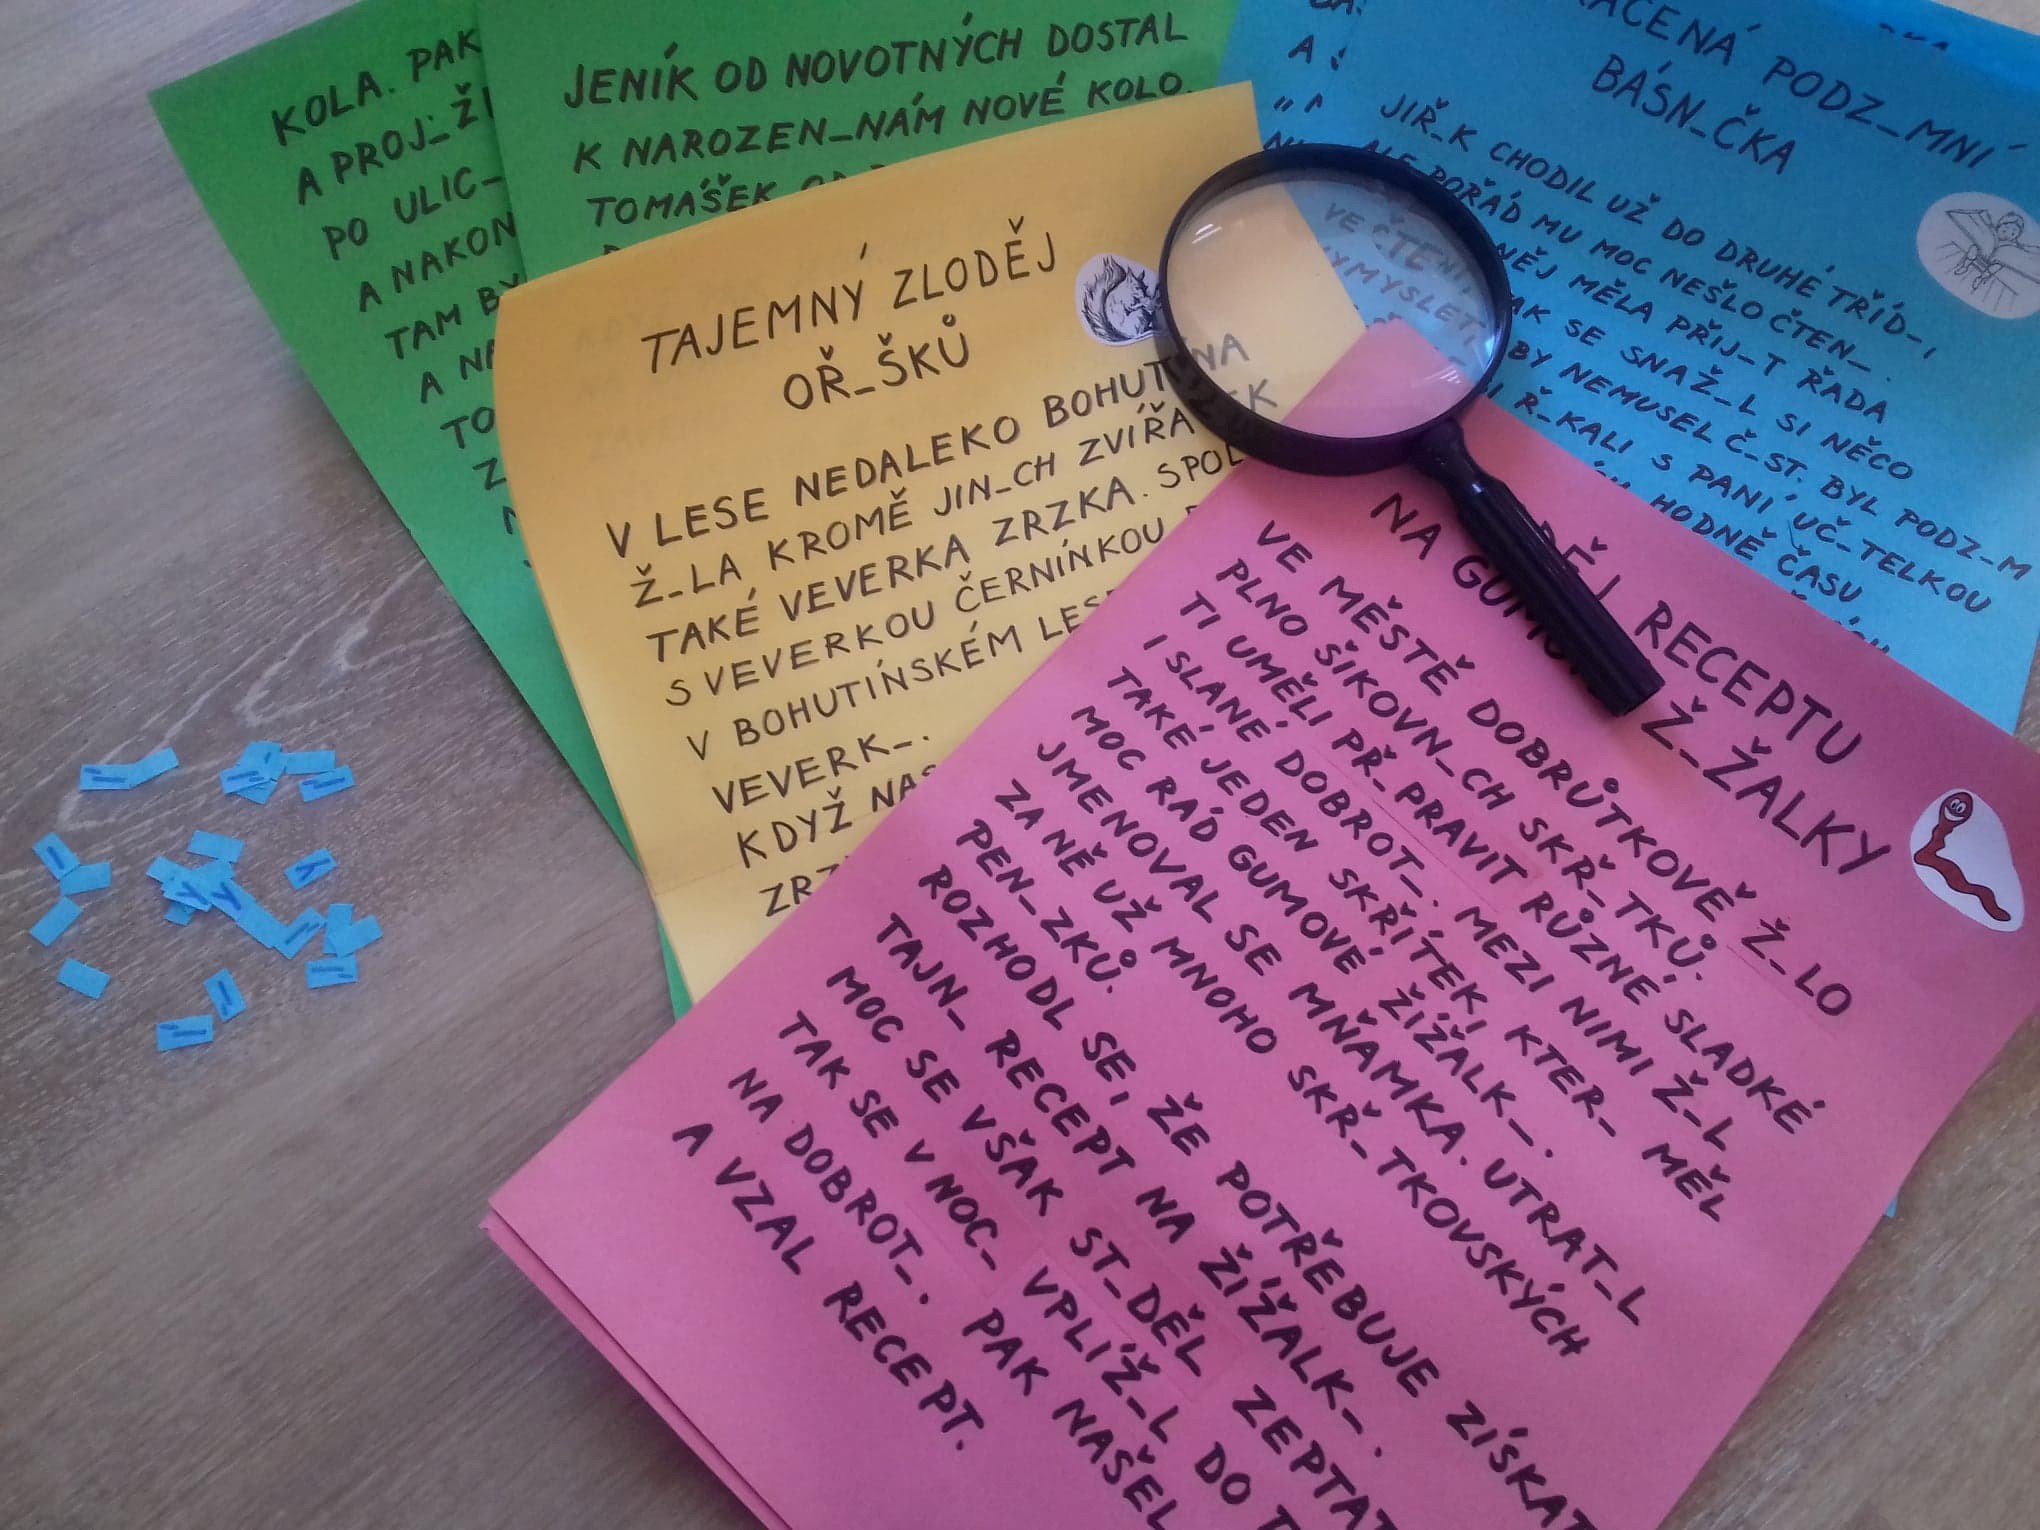 KOLA. PAK
A PROJ_ŽĎ
PO ULIC_
A NAKON
TAM BY
A NA
TO
Z
JENÍK OD NOVOTNÝCH DOSTAL
K NAROZEN_NÁM NOVÉ KOLO.
TOMÁŠEK OD
TAJEMNÝ ZLODĚJ
OŘ_ŠKŮ
V LESE NEDALEKO BOHUTÍNA
Ž_LA KROMĚ JIN_CH ZVÍŘÁTEK
TAKÉ VEVERKA ZRZKA. SPOL
S VEVERKOU ČERNÍNKOU
V BOHUTÍNSKÉM LESE
VEVERK_.
KDYŽ NAS
ZRZ
RACENÁ PODZ_MNÍ
BÁSN_ČKA
JIŘ_K CHODIL UŽ DO DRUHÉ TŘÍD_,
ALE POŘÁD MU MOC NEŠLO ČTEN_.
NĚJ MĚLA PŘIJ_T ŘADA
VE ČTENÍ
AK SE SNAŽ_L SI NĚCO
VYMYSLET,
BY NEMUSEL Č_ST. BYL PODZ_M
Ř_KALI S PANÍ UČ_TELKOU
HODNĚ ČASU
DĚJ RECEPTU
NA GUMOV Ž_ŽALKY
VE MĚSTĚ DOBRŮTKOVĚ Ž_LO
PLNO ŠIKOVN_CH SKŘ_TKŮ.
TI UMĚLI PŘ_PRAVIT RŮZNÉ SLADKÉ
I SLANÉ DOBROT_. MEZI NIMI Ž_L
TAKÉ JEDEN SKŘÍTEK, KTER_ MĚL
MOC RÁD GUMOVÉ ŽÍŽALK_.
JMENOVAL SE MŇAMKA. UTRAT_L
ZA NĚ UŽ MNOHO SKŘ_TKOVSKÝCH
PEN_ZKŮ.
ROZHODL SE, ŽE POTŘEBUJE ZÍSKAT
TAJN_ RECEPT NA ŽÍŽALK_.
MOC SE VŠAK ST_DĚL ZEPTAT
TAK SE V NOC_ VPLÍŽ_L DO
NA DOBROT_. PAK NAŠEL
A VZAL RECEPT.